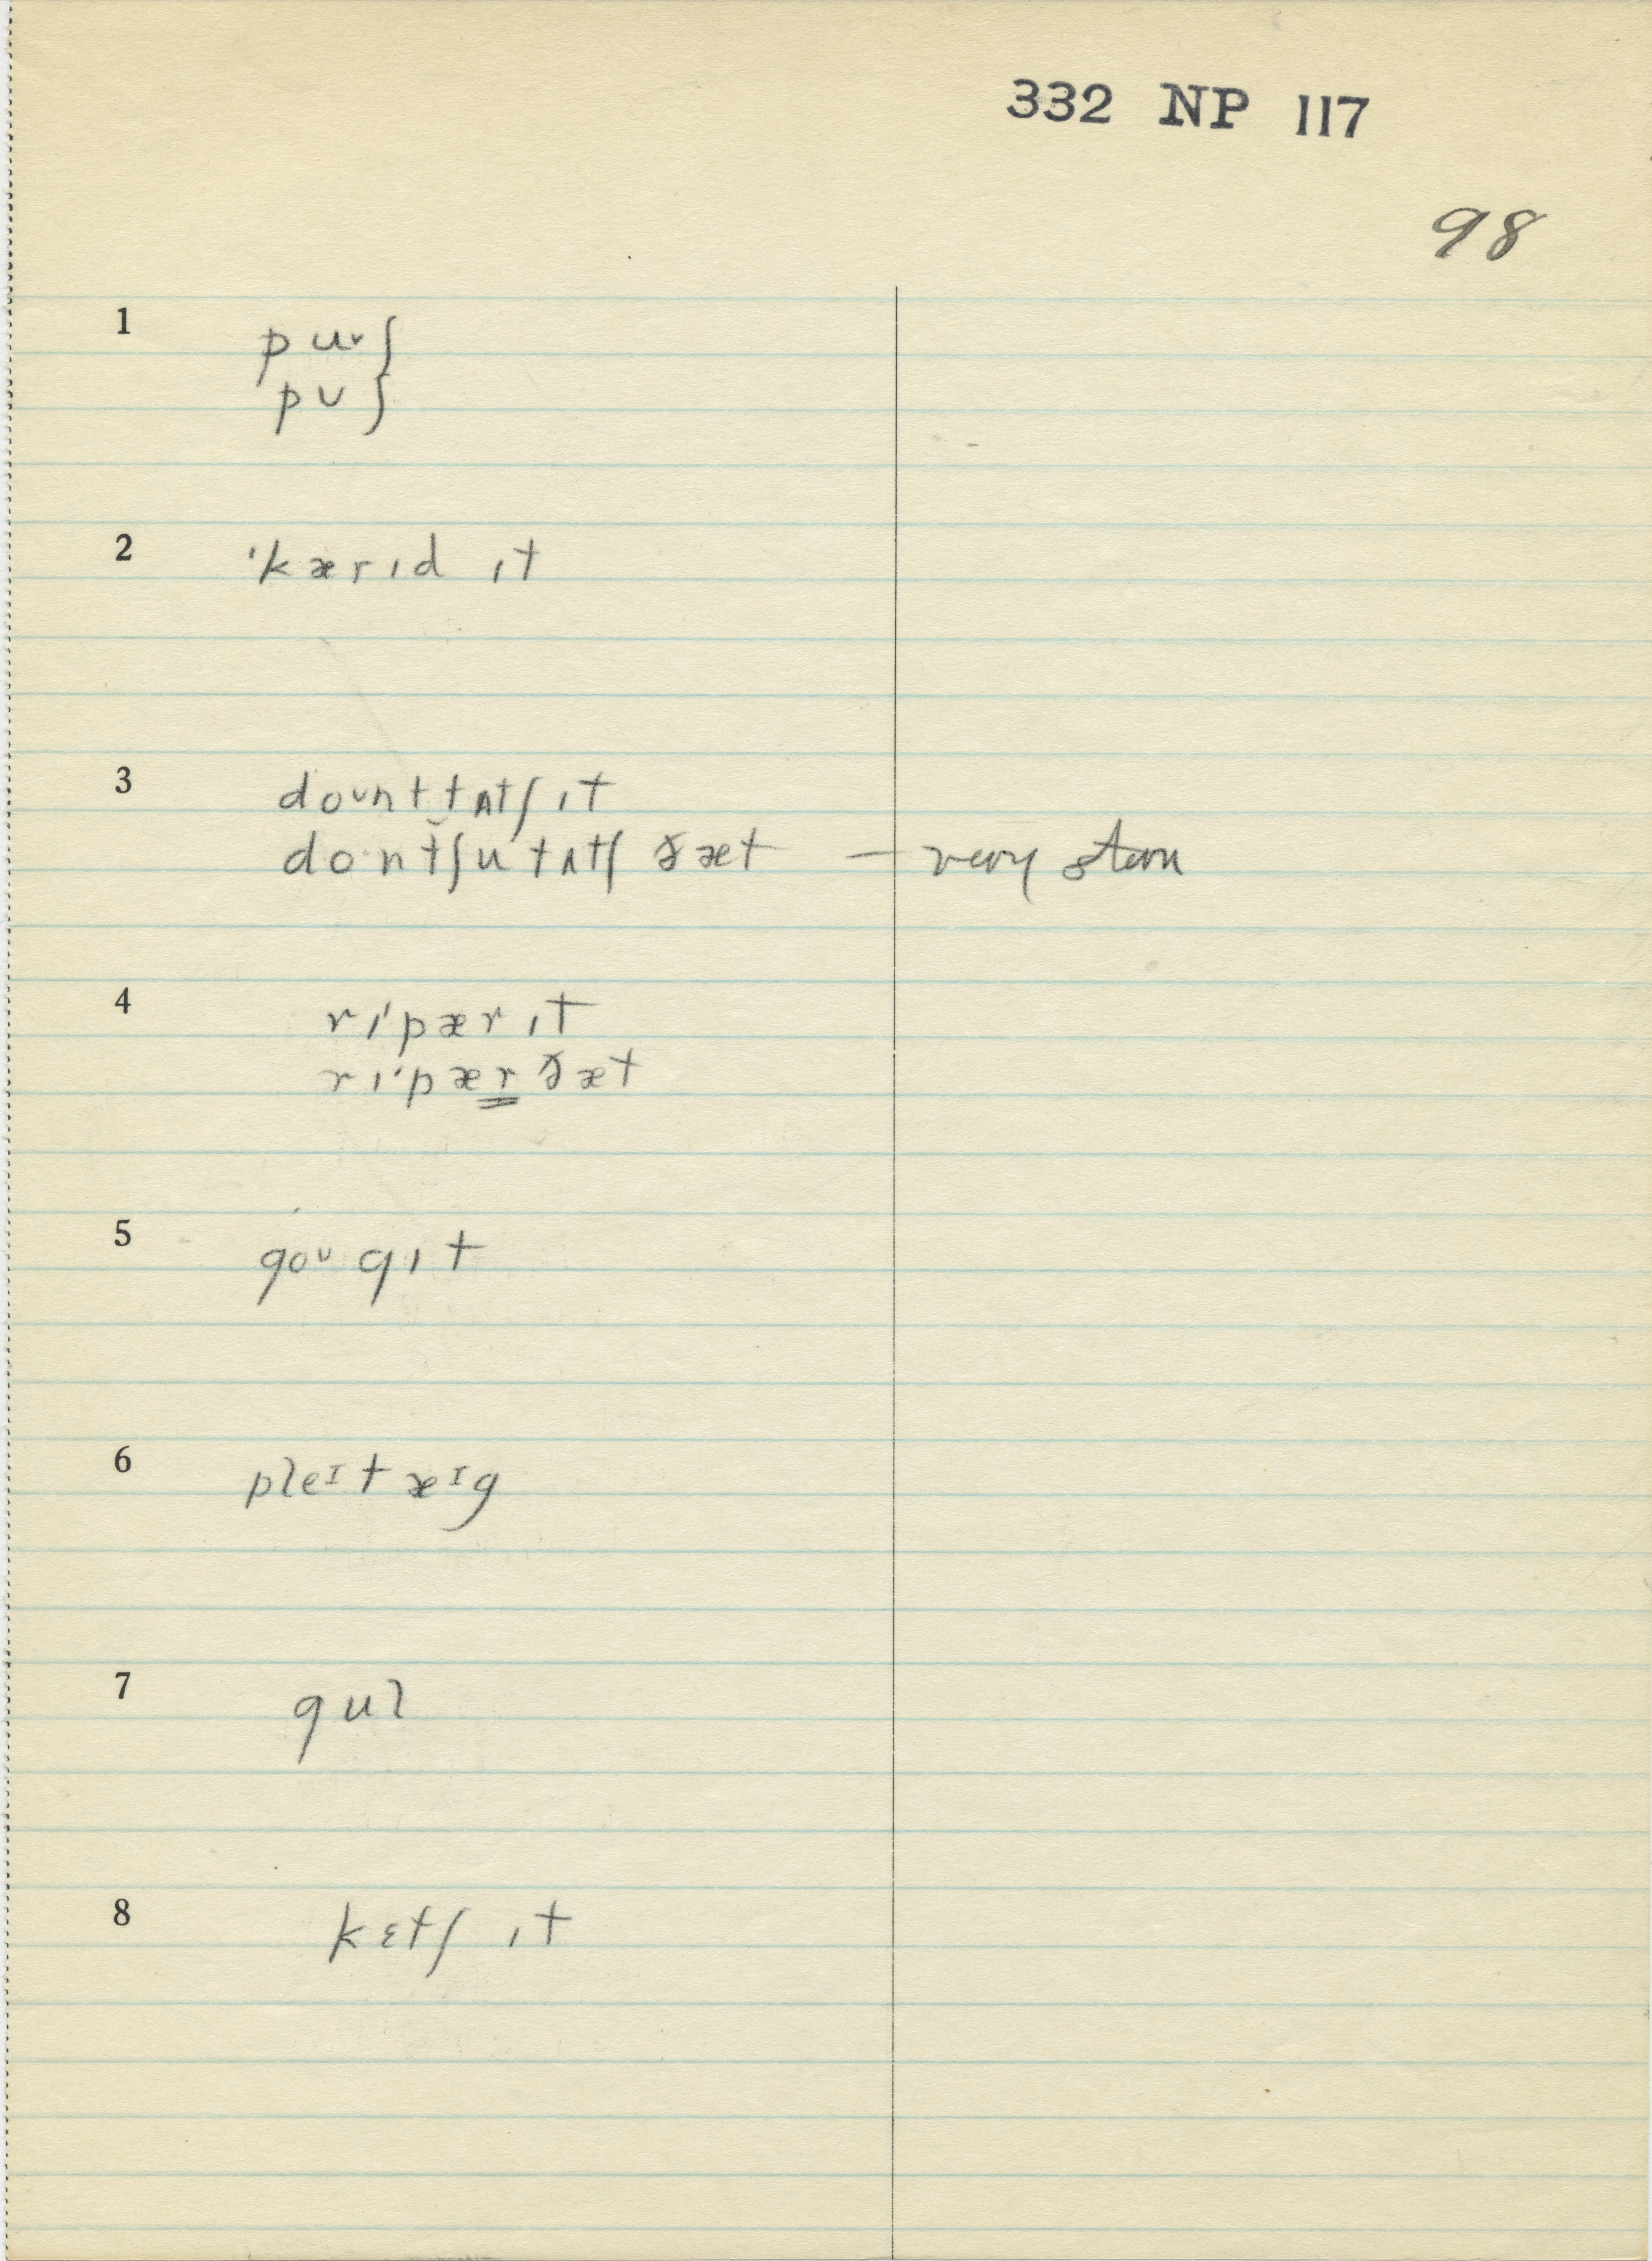 332 NP 117
98
1 puʃ }
pʊʃ }
2 ˈkærɪd ɪt
3 doʊnt tʌtʃ ɪt
do·ntʃu tʌtʃ ðæt — very stern
4 rɪˈpær ɪt
rɪˈpær ðæt
5 goʊ gɪt
6 pleɪt æɪg
7 gul
8 kɛtʃ ɪt